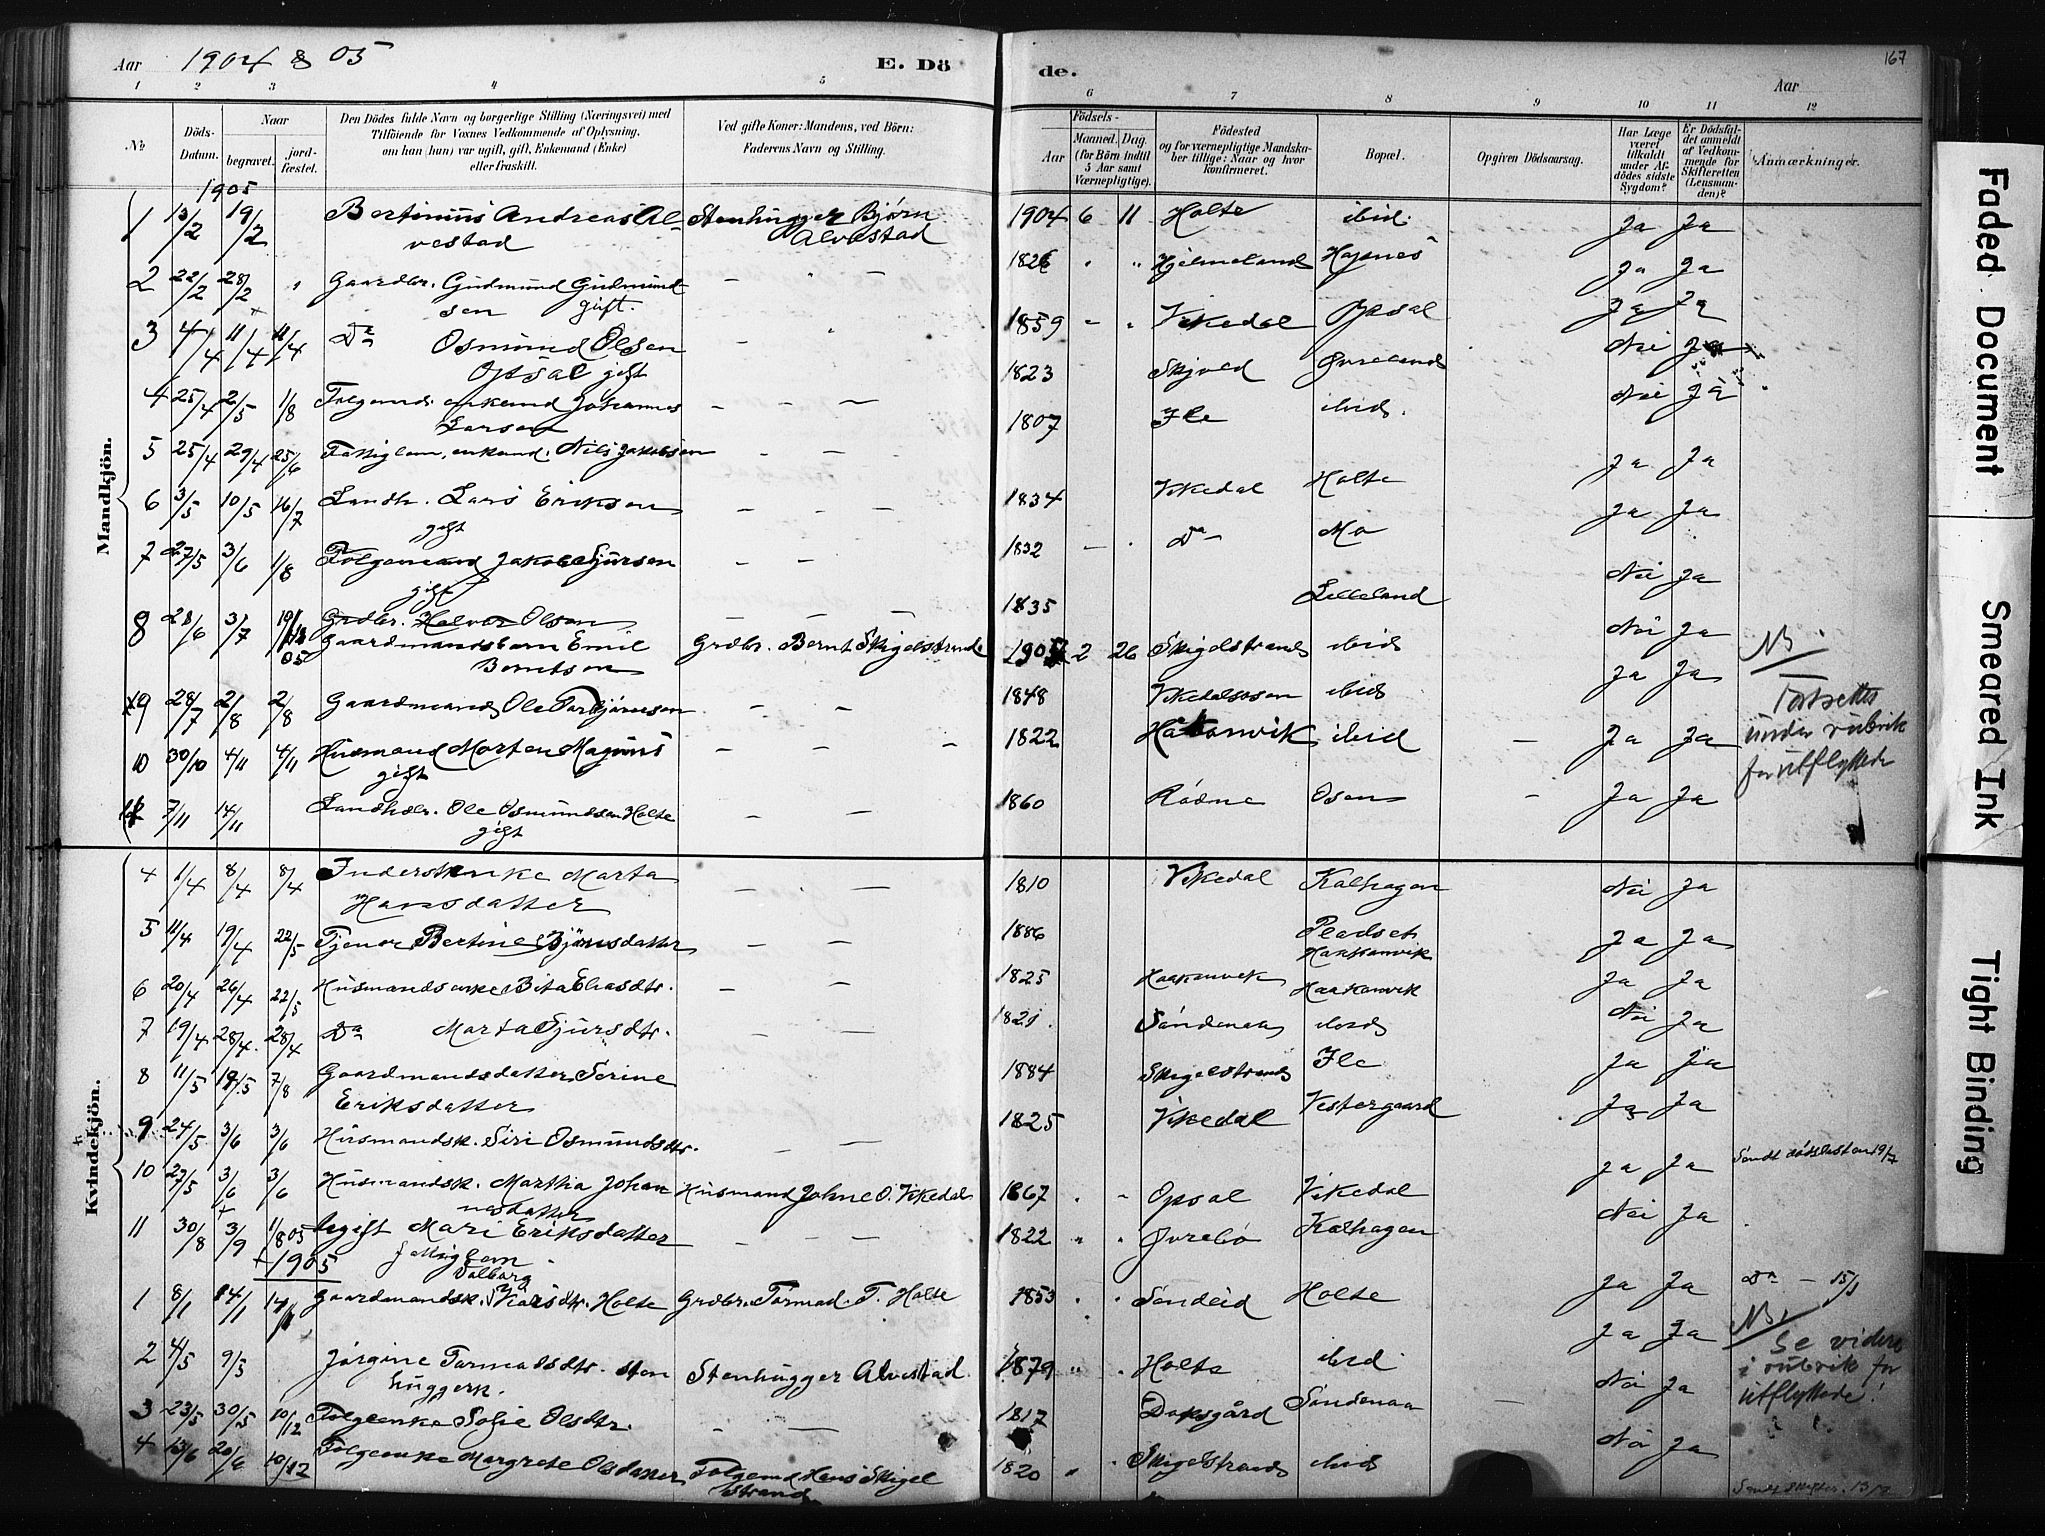 Aar 1904 & 05 E. Dö de. Aar 167
1 2 3 4 5 6 7 8 9 10 11 12
No
Döds-Datum.
Naar
begravet.
jord-fæstet.
Den Dödes fulde Navn og borgerlige Stilling (Næringsvei) med
Tilföiende for Voxnes Vedkommende af Oplysning,
om han (hun) var ugift, gift, Enkemand (Enke)
eller fraskilt.
Ved gifte Koner: Mandens, ved Börn:
Faderens Navn og Stilling.
Födsels-
Aar
Maaned. Dag.
(for Börn indtil
5 Aar samt
Værnepligtige).
Födested
og for værnepligtige Mandska-
ber tillige: Naar og hvor
konfirmeret.
Bopæl.
Opgiven Dödsaarsag.
Har Læge
været
tilkaldt
under Af-
dödes sidste
Sygdom?
Er Dödsfal-
det anmeldt
af Vedkom-
mende for
Skifteretten
(Lensman-
den)?
Anmærkninger.
1905
Mandkjön.
1 13/2 19/2 Bertinius Andreas Al- Stenhugger Bjørn 1904 6 11 Holte ibid. Ja Ja
vestad Alvestad
2 22/2 28/2 " Gaardbr. Gudmund Gudmund - - 1826 Hjelmeland Hapnes Ja Ja
sen gift.
3 4/4 11/4 11/4 Do Osmund Olsen 1859 - " Vikedal Opsal Ja Ja
Opsal gift
4 25/4 2/5 1/8 Folgemd. enkemd Johannes - - - 1823 Skjold Øvreland Nei Ja
Larsen
5 25/4 29/4 25/6 Fattiglem, enkemd. Nils Jakobsen - - 1807 Ile ibid. Nei Ja
6 3/5 10/5 16/7 Landh. Lars Eriksen - - - 1834 Vikedal Holte Ja Ja
gift
7 27/5 3/6 1/8 Folgemand Jakob Sjursen - - 1832 - Do Mo Ja Ja
gift
8 28/6 3/7 Grdbr. Halvor Olsen - - - 1835 Lelleland Nei Ja
05 Gaardmandsbarn Emil Grdbr. Bernt Skigelstrand 1905 2 26 Skigelstrand ibid Nei Ja NB.
Berntsen
9 28/7 2/8 2/8 Gaardmand Ole Torbjørnsen - - 1848 Vikedalsosen ibid Ja Ja Fortsettes
under rubrik
for utflyttede
10 30/10 4/11 4/11 Husmand Morten Magnus - - - 1822 Håkonvik ibid - Ja Ja
gift
11 7/11 14/11 Landhdlr. Ole Osmundsen Holte - - 1860 Rödne Osen - Ja Ja
gift
Kvindekjön.
4 1/4 8/4 8/4 Inderstenke Marta - - - 1810 Vikedal Kalhagen Nei Ja
Hansdatter
5 11/4 19/4 22/5 Tjener Bertine Bjørnsdatter - - 1886 Pladset Ja Ja
Haakonvik
6 20/4 26/4 22/5 Husmandsenke Brita Eliasdtr. - - 1825 Haakonvik Haakonvik Ja Ja
7 19/4 28/4 28/4 Do Marta Sjursdtr. - - 1821 Söndenaa ibid Nei Ja
8 11/5 19/5 7/8 Gaardmandsdatter Serine 1884 Skigelstrand Ile Ja ja
Eriksdatter
9 24/5 3/6 3/6 Husmandsk. Siri Osmundsdtr. - 1825 Vikedal Vestergaard Ja Ja
10 27/5 3/6 3/6 Husmandsk. Martha Johan Husmand Johne O. Vikedal 1867 " " Opsal Vikedal Ja Ja Sendt dödslisten 19/7
nesdatter
11 30/8 3/9 1/8 05 Ugift Mari Eriksdatter - - - 1822 " " Øvrebö Kalhagen Nei Ja
fattiglem
1905
Valborg
1 8/1 14/1 14/1 Gaardmandsk. Karsdtr. Holte Grdbr. Tormod. T. Holte 1853 Söndeid Holte Ja Ja Do - 15/1
2 4/5 9/5 Jörgine Tormodsdtr. sten Stenhugger Alvestad 1879 " " Holte ibid Ja Ja NB.
huggerk.
Se videre
i rubrik for
utflyttede!
3 23/5 30/5 10/12 Folgeenke Sofie Olsdtr. - - 1817 Dapsgård Söndenaa - Nei Ja
4 13/6 20/6 10/12 Folgeenke Margrete Olsdatter Folgemd Hans Skigel 1820 " " Skigelstrand ibid Nei Ja
strand
Faded Document
Smeared Ink
Tight Binding